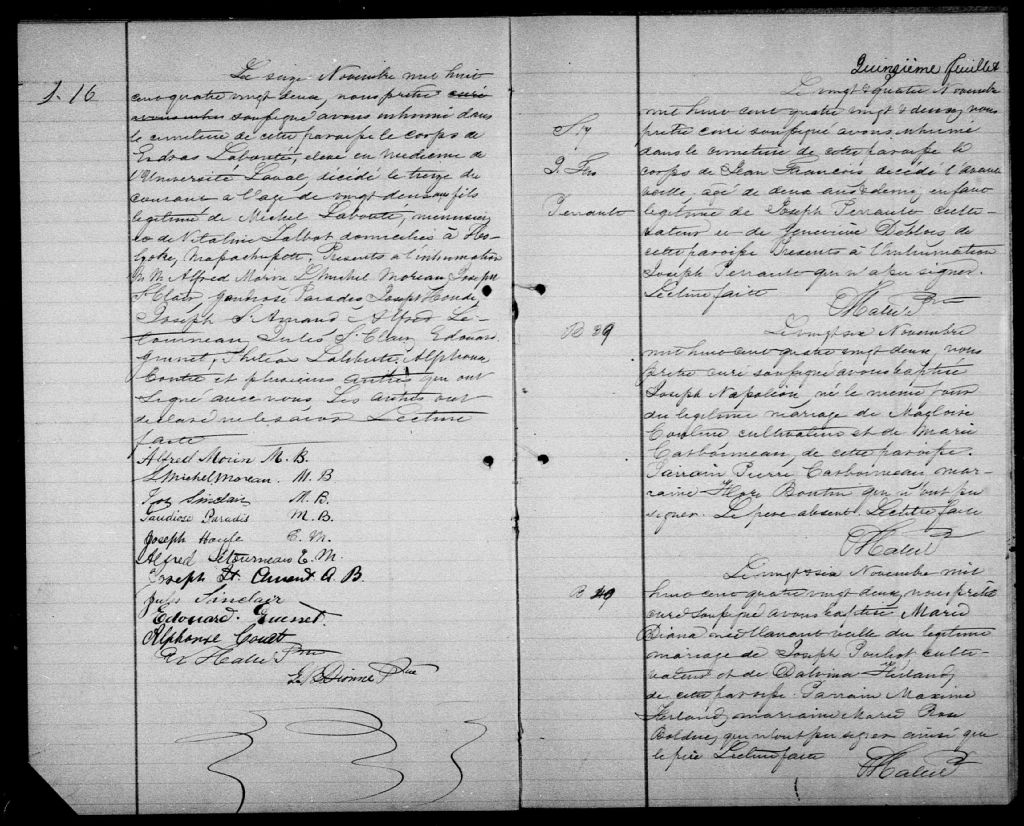 S. 16
Le seize Novembre mil huit
cent quatre vingt deux, nous prêtre curé
soussigné avons inhumé dans
le cimetière de cette paroisse le corps de
Esdras Labonté, élève en médecine de
l'Université Laval, décédé le treize du
courant à l'age de vingt deux ans fils
légitime de Michel Labonté, menuisier
et de Vitaline Talbot domiciliés à Ho-
lyoke, Massachusetts. Présents à l'inhumation
M M Alfred Morin L Michel Moreau Joseph
St Clair, Paradis Joseph Houde
Joseph St Amand Alfred Le-
tourneau, Jules St Clair, Edouard
Guenet, Laliberté, Alphonse
et plusieurs autres qui ont
signé avec nous. Les autres ont
déclaré ne le savoir Lecture
faite
Alfred Morin M. B.
L Michel Moreau. M. B
Jos Sinclair M. B.
Paradis M. B.
Joseph Houde E. M.
Alfred Létourneau E. M.
Joseph St. Amant A. B.
Jules Sinclair
Edouard. Guenet.
Alphonse
Ptre
Dionne Ptre
Quinzième feuillet
S. 17
J. Frs
Perrault
Le vingt & quatre Novembre
mil huit cent quatre vingt & deux, nous
prêtre curé soussigné avons inhumé
dans le cimetière de cette paroisse le
corps de Jean François décédé l'avant
veille, agé de deux ans & demi, enfant
légitime de Joseph Perrault culti-
vateur et de Geneviève Deblois de
cette paroisse Présents à l'inhumation
Joseph Perrault qui n'a pu signer.
Lecture faite
Ptre
B 39
Le vingt six Novembre
mil huit cent quatre vingt deux, nous
prêtre curé soussigné avons baptisé
Joseph Napoléon, né le même jour
du légitime mariage de Magloire
Couture cultivateur et de Marie
Carbonneau, de cette paroisse.
Parrain Pierre Carbonneau mar-
raine Flore Boutin qui n'ont pu
signer. Le père absent. Lecture faite
Ptre
B 40
Le vingt & six Novembre mil
huit cent quatre vingt deux, nous prêtre
curé soussigné avons baptisé Marie
Diana née l'avant veille du légitime
mariage de Joseph Pouliot culti-
vateur et de Dalvina Ferland,
de cette paroisse. Parrain Maxime
Ferland, marraine Marie Rose
Bolduc, qui n'ont pu signer ainsi que
le père Lecture faite
Ptre